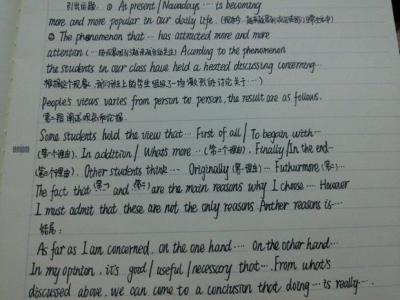 引出话题: ① At present / Nowadays ···· is becoming
more and more popular in our daily life.
② The phenomenon that ··· has attracted more and more
attention ( ) According to the phenomenon
the students in our class have held a heated discussing concerning···
People's views varies from person to person, the result are as follows.
Some students hold the view that··· First of all / To begin with···
(第一个理由). In addition / What's more ··· (第二个理由). Finally / In the end···
(第三个理由). Other students think ··· Originally (第一理由)··· Futhurmore (第二)···
The fact that (第一) and (第二) are the main reasons why I choose ···· However
I must admit that these are not the only reasons Anther reasons is···
结尾:
As far as I am concerned, on the one hand ···· on the other hand···
In my opinion, it's good / useful / necessary that ···. From what's
discussed above, we can come to a conclusion that doing ··· is really···.